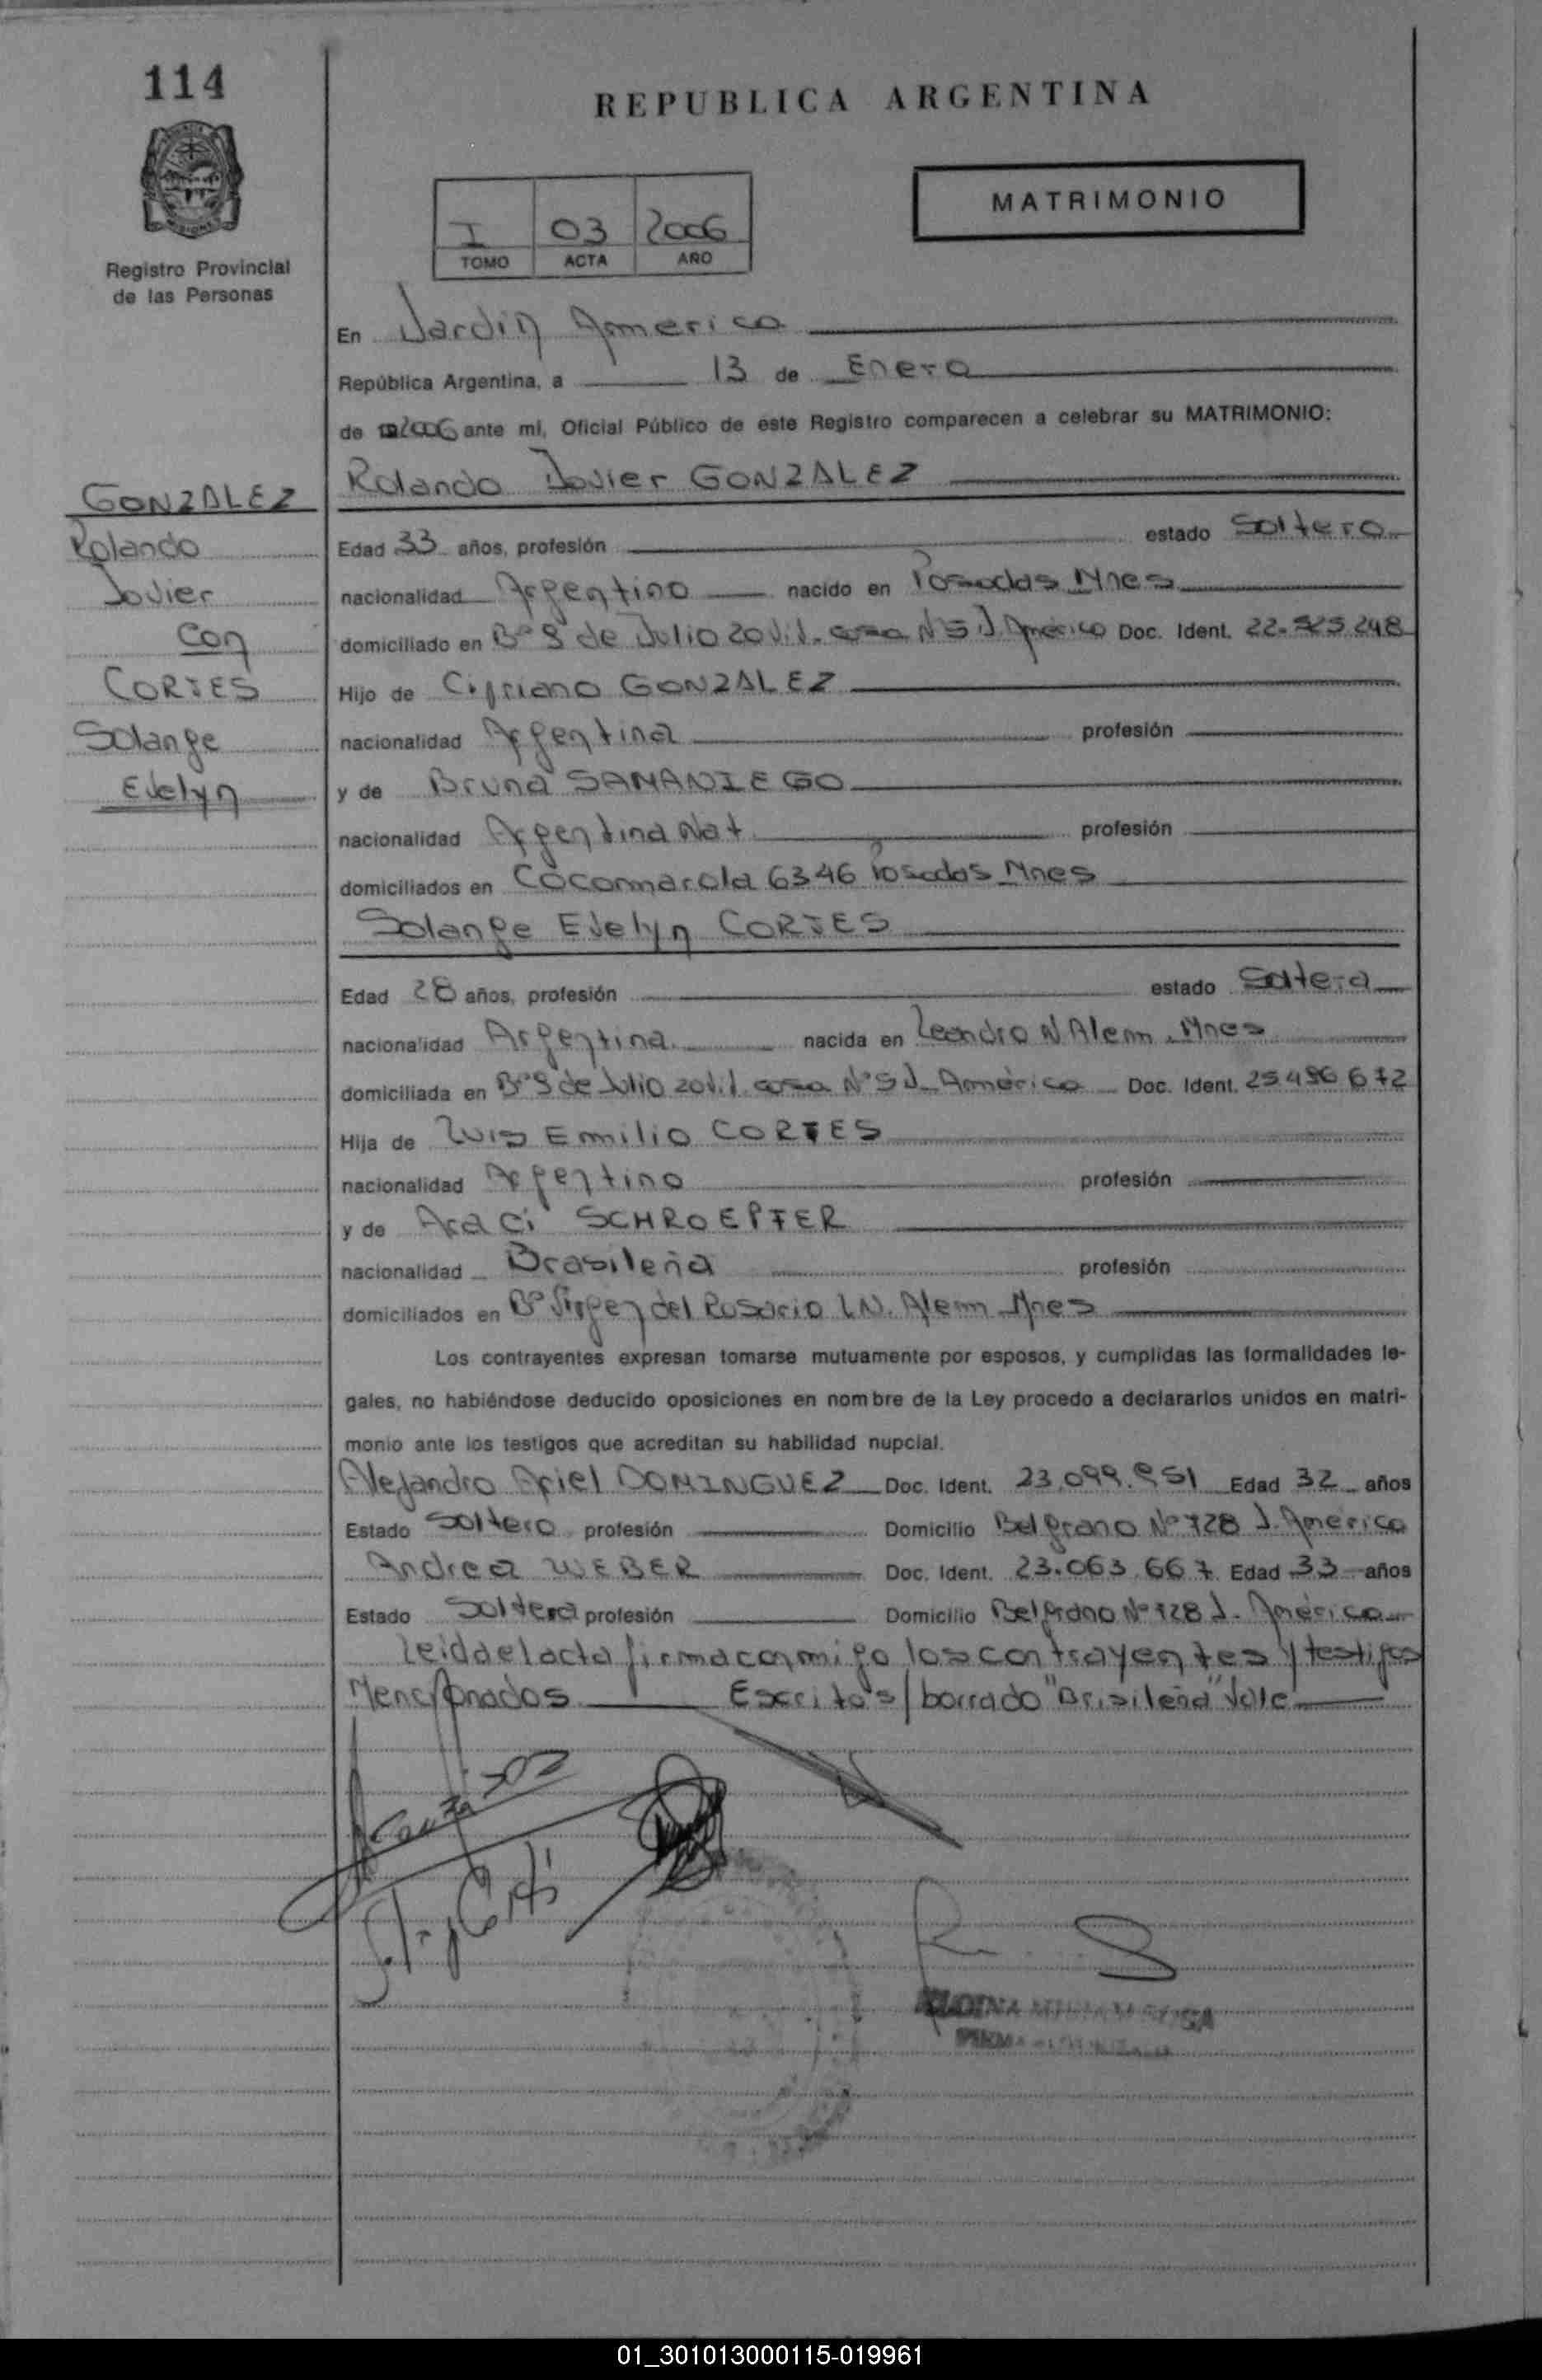 114
REPUBLICA ARGENTINA
MATRIMONIO
I 03 2006
TOMO ACTA AÑO
Registro Provincial
de las Personas
En Jardin America
República Argentina, a 13 de Enero
de 2006 ante mí, Oficial Público de este Registro comparecen a celebrar su MATRIMONIO:
GONZALEZ
Rolando
Javier
Con
CORTES
Solange
Evelyn
Rolando Javier GONZALEZ
Edad 33 años, profesión estado Soltero
nacionalidad Argentino nacido en Posadas Mnes
domiciliado en Bº 9 de Julio 20 Viv. casa Nº 5 J. América Doc. Ident. 22.525.248
Hijo de Cipriano GONZALEZ
nacionalidad Argentina profesión
y de Bruna SAMANIEGO
nacionalidad Argentina Nat profesión
domiciliados en Cocomarola 6346 Posadas Mnes
Solange Evelyn CORTES
Edad 28 años, profesión estado Soltera
nacionalidad Argentina nacida en Leandro N Alem. Mnes
domiciliada en Bº 9 de Julio 20 Viv. casa Nº 5 J. América Doc. Ident. 25496672
Hija de Luis Emilio CORTES
nacionalidad Argentino profesión
y de Araci SCHROEPFER
nacionalidad Brasileña profesión
domiciliados en Bº Virgen del Rosario L.N. Alem Mnes
Los contrayentes expresan tomarse mutuamente por esposos, y cumplidas las formalidades le-
gales, no habiéndose deducido oposiciones en nombre de la Ley procedo a declararlos unidos en matri-
monio ante los testigos que acreditan su habilidad nupcial.
Alejandro Ariel DOMINGUEZ Doc. Ident. 23.099.951 Edad 32 años
Estado Soltero profesión Domicilio Belgrano Nº 728 J. América
Andrea WEBER Doc. Ident. 23.063.667 Edad 33 años
Estado Soltera profesión Domicilio Belgrano Nº 728 J. América
Leida el acta firma conmigo los contrayentes y testigos
Mencionados Escrito s/borrado "Brisileña" Vale
01_301013000115-019961